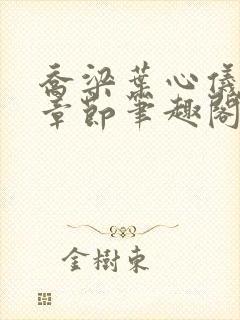 喬梁葉心儀
章節筆趣閣
金樹東